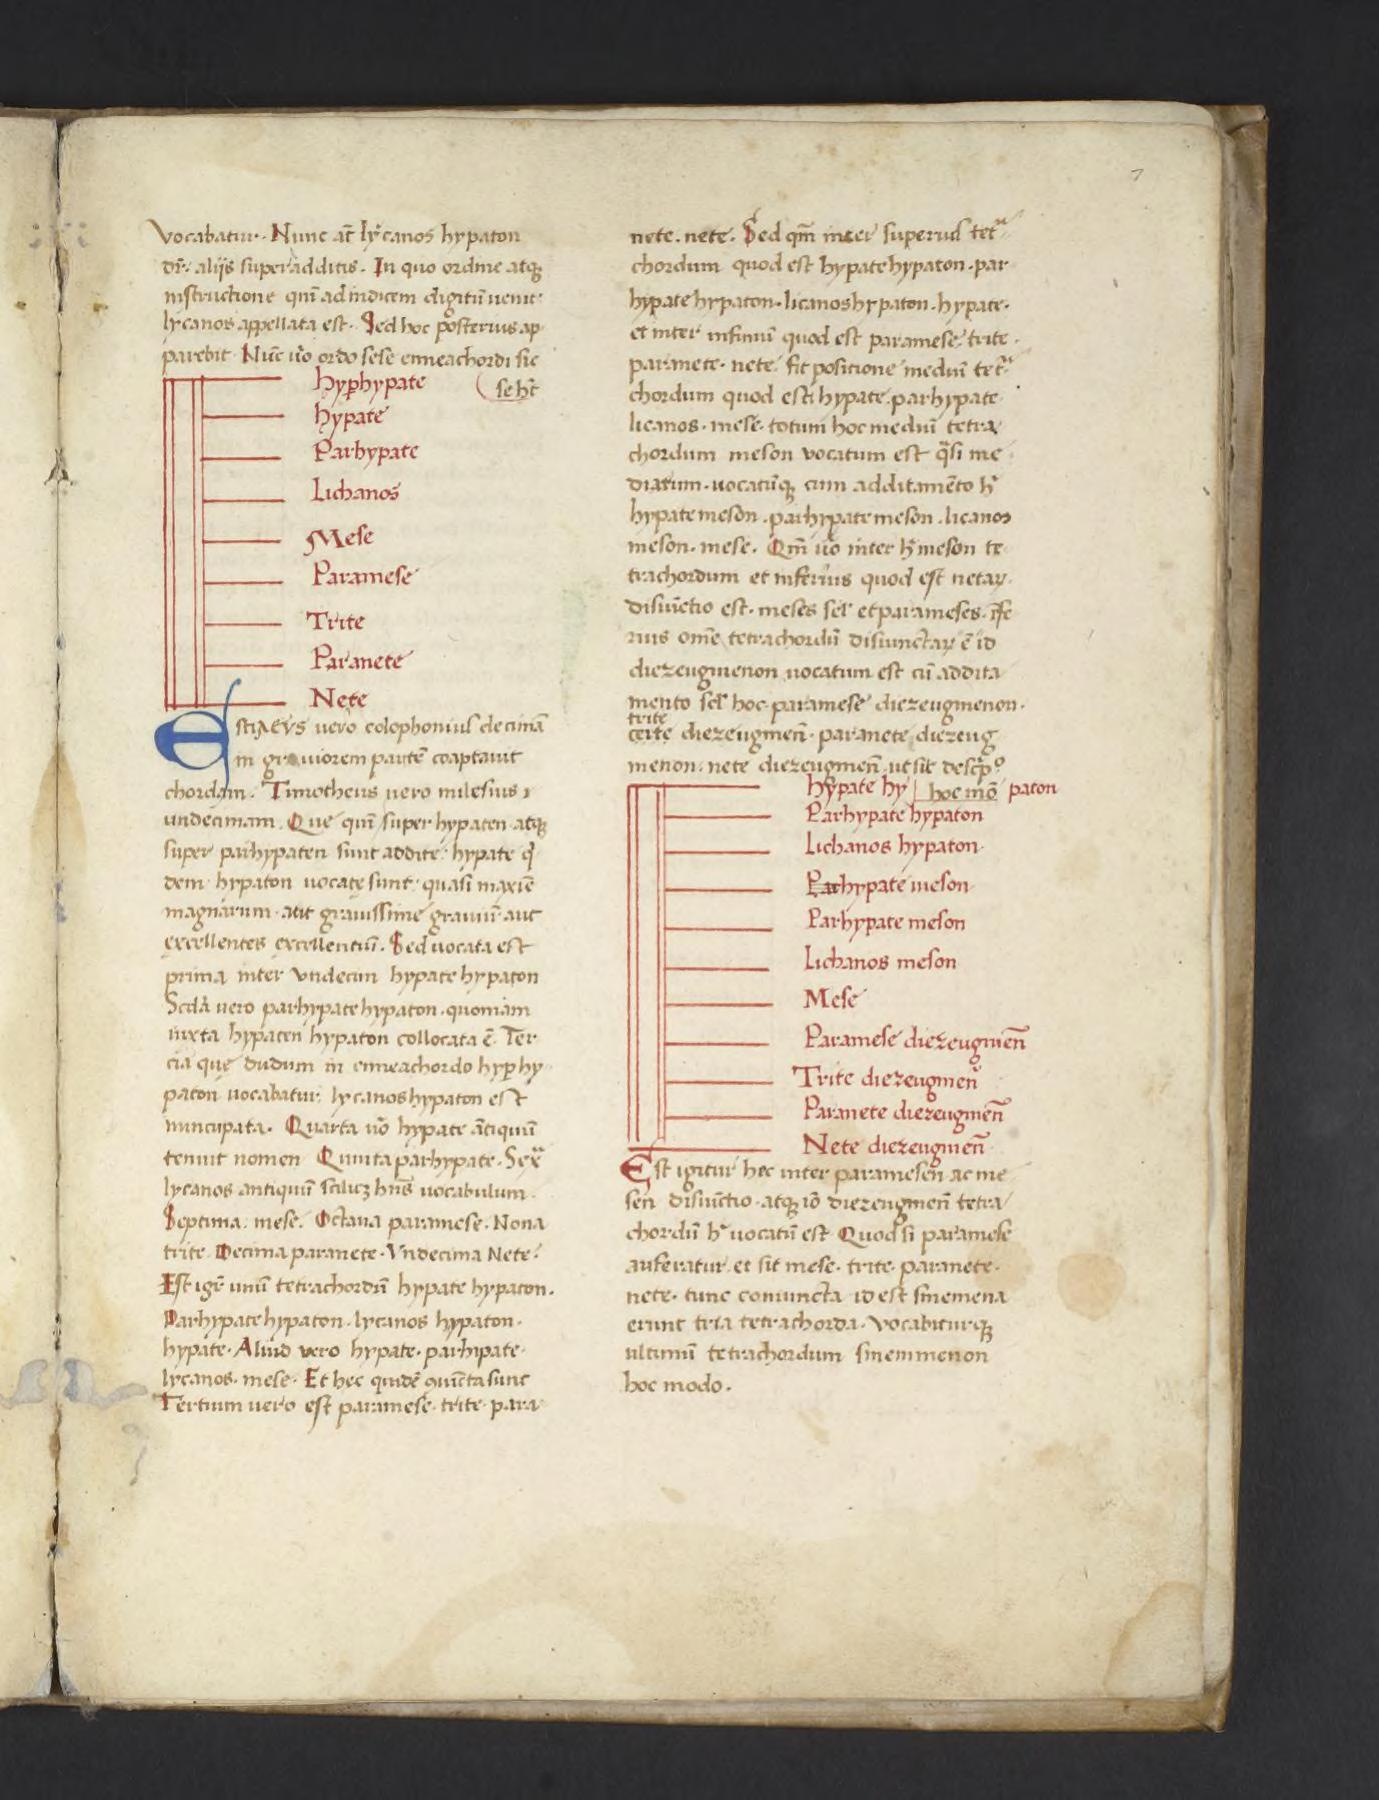 7
vocabatur. Nunc at̄ lycanos hypaton
dr̄. alijs superadditis. In quo ordine atqꝫ
instructione qm̄ ad indicem digitū uenit
lycanos appellata est. Sed hoc posterius ap
parebit. Nūc u̅o ordo sese enneachordi sic
se ht̄
hyꝑhypate
hypate
Parhypate
Lichanos
Mese
Paramese
Trite
Paranete
Nete
Estiaeus vero colophonius decimā
in grauiorem partē coaptauit
chordam. Timotheus uero milesius
undecimam. Que qm̄ super hypaten atqꝫ
super parhypaten sunt addite. hypate q
dem hypaton uocate sunt. quasi maxīe
magnarum. aut grauissime grauiū aut
excellentes excellentiū. Sed uocata est
prima inter vndecim hypate hypaton
Scda vero parhypate hypaton. quoniam
iuxta hypaten hypaton collocata ē. Ter
cia que dudum in enneachordo hyꝑhy
paton uocabatur. lycanos hypaton est
nuncupata. Quarta u̅o hypate ātiquū
tenuit nomen Quinta parhypate. Sexa
lycanos antiquū scilicꝫ hn̄s uocabulum.
Septima. mese. Octaua paramese. Nona
trite. Decima paranete. Vndecima Nete.
Est igr̄ unū tetrachordū hypate hypaton.
Parhypate hypaton. lycanos hypaton.
hypate. Aliud vero hypate. parhipate
lycanos. mese. Et hec quidē cuncta sunt
Tertium uero est paramese. trite. para
nete. nete. Sed qm̄ inter superius tetra
chordum quod est hypate hypaton. par
hypate hypaton. licanos hypaton. hypate.
et inter infimū quod est paramese. trite.
paranete. nete. fit positione mediū tetra
chordum quod est hypate. parhypate
licanos. mese. totum hoc mediū tetra
chordum meson vocatum est qasi me
diarum. uocatūqꝫ cum additamēto h
hypate meson. parhypate meson. licanos
meson. mese. Qm̄ u̅o inter h meson te
trachordum et inferius quod est netaꝝ.
disiūctio est. meses scl̄ et parameses. īfe
rius om̄e tetrachordū disiunctaꝝ ē id
diezeugmenon uocatum est cū addita
mento scl̄ hoc. paramese diezeugmenon.
trite
ceite diezeugmen̄. paranete diezeug
menon. nete diezeugmen̄. ut sit descrp̄o
hypate hy hoc mō paton
Parhypate hypaton
Lichanos hypaton
Parhypate meson
Parhypate meson
Lichanos meson
Mese
Paramese diezeugmen̄
Trite diezeugmen̄
Paranete diezeugmen̄
Nete diezeugmen̄
Est igitur hec inter paramesen ac me
sen disiūctio. atqꝫ iō diezeugmen̄ tetra
chordū h uocatū est Quod si paramese
auferatur. et sit mese. trite. paranete.
nete. tunc coniuncta id est sinemena
erunt tria tetrachorda. Vocabiturqꝫ
ultimū tetrachordum sinemmenon
hoc modo.